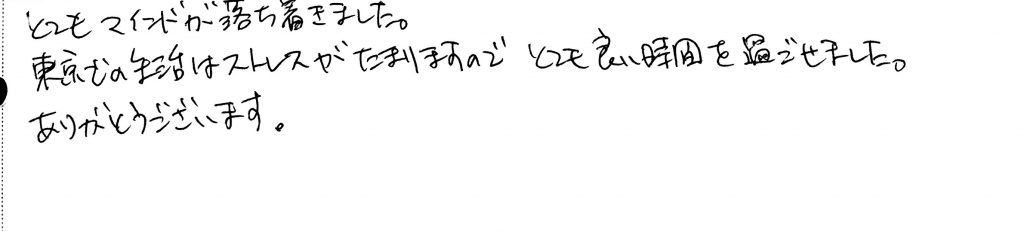 とてもマインドが落ち着きました。
東京での生活はストレスがたまりますので とても良い時間を過ごせました。
ありがとうございます。